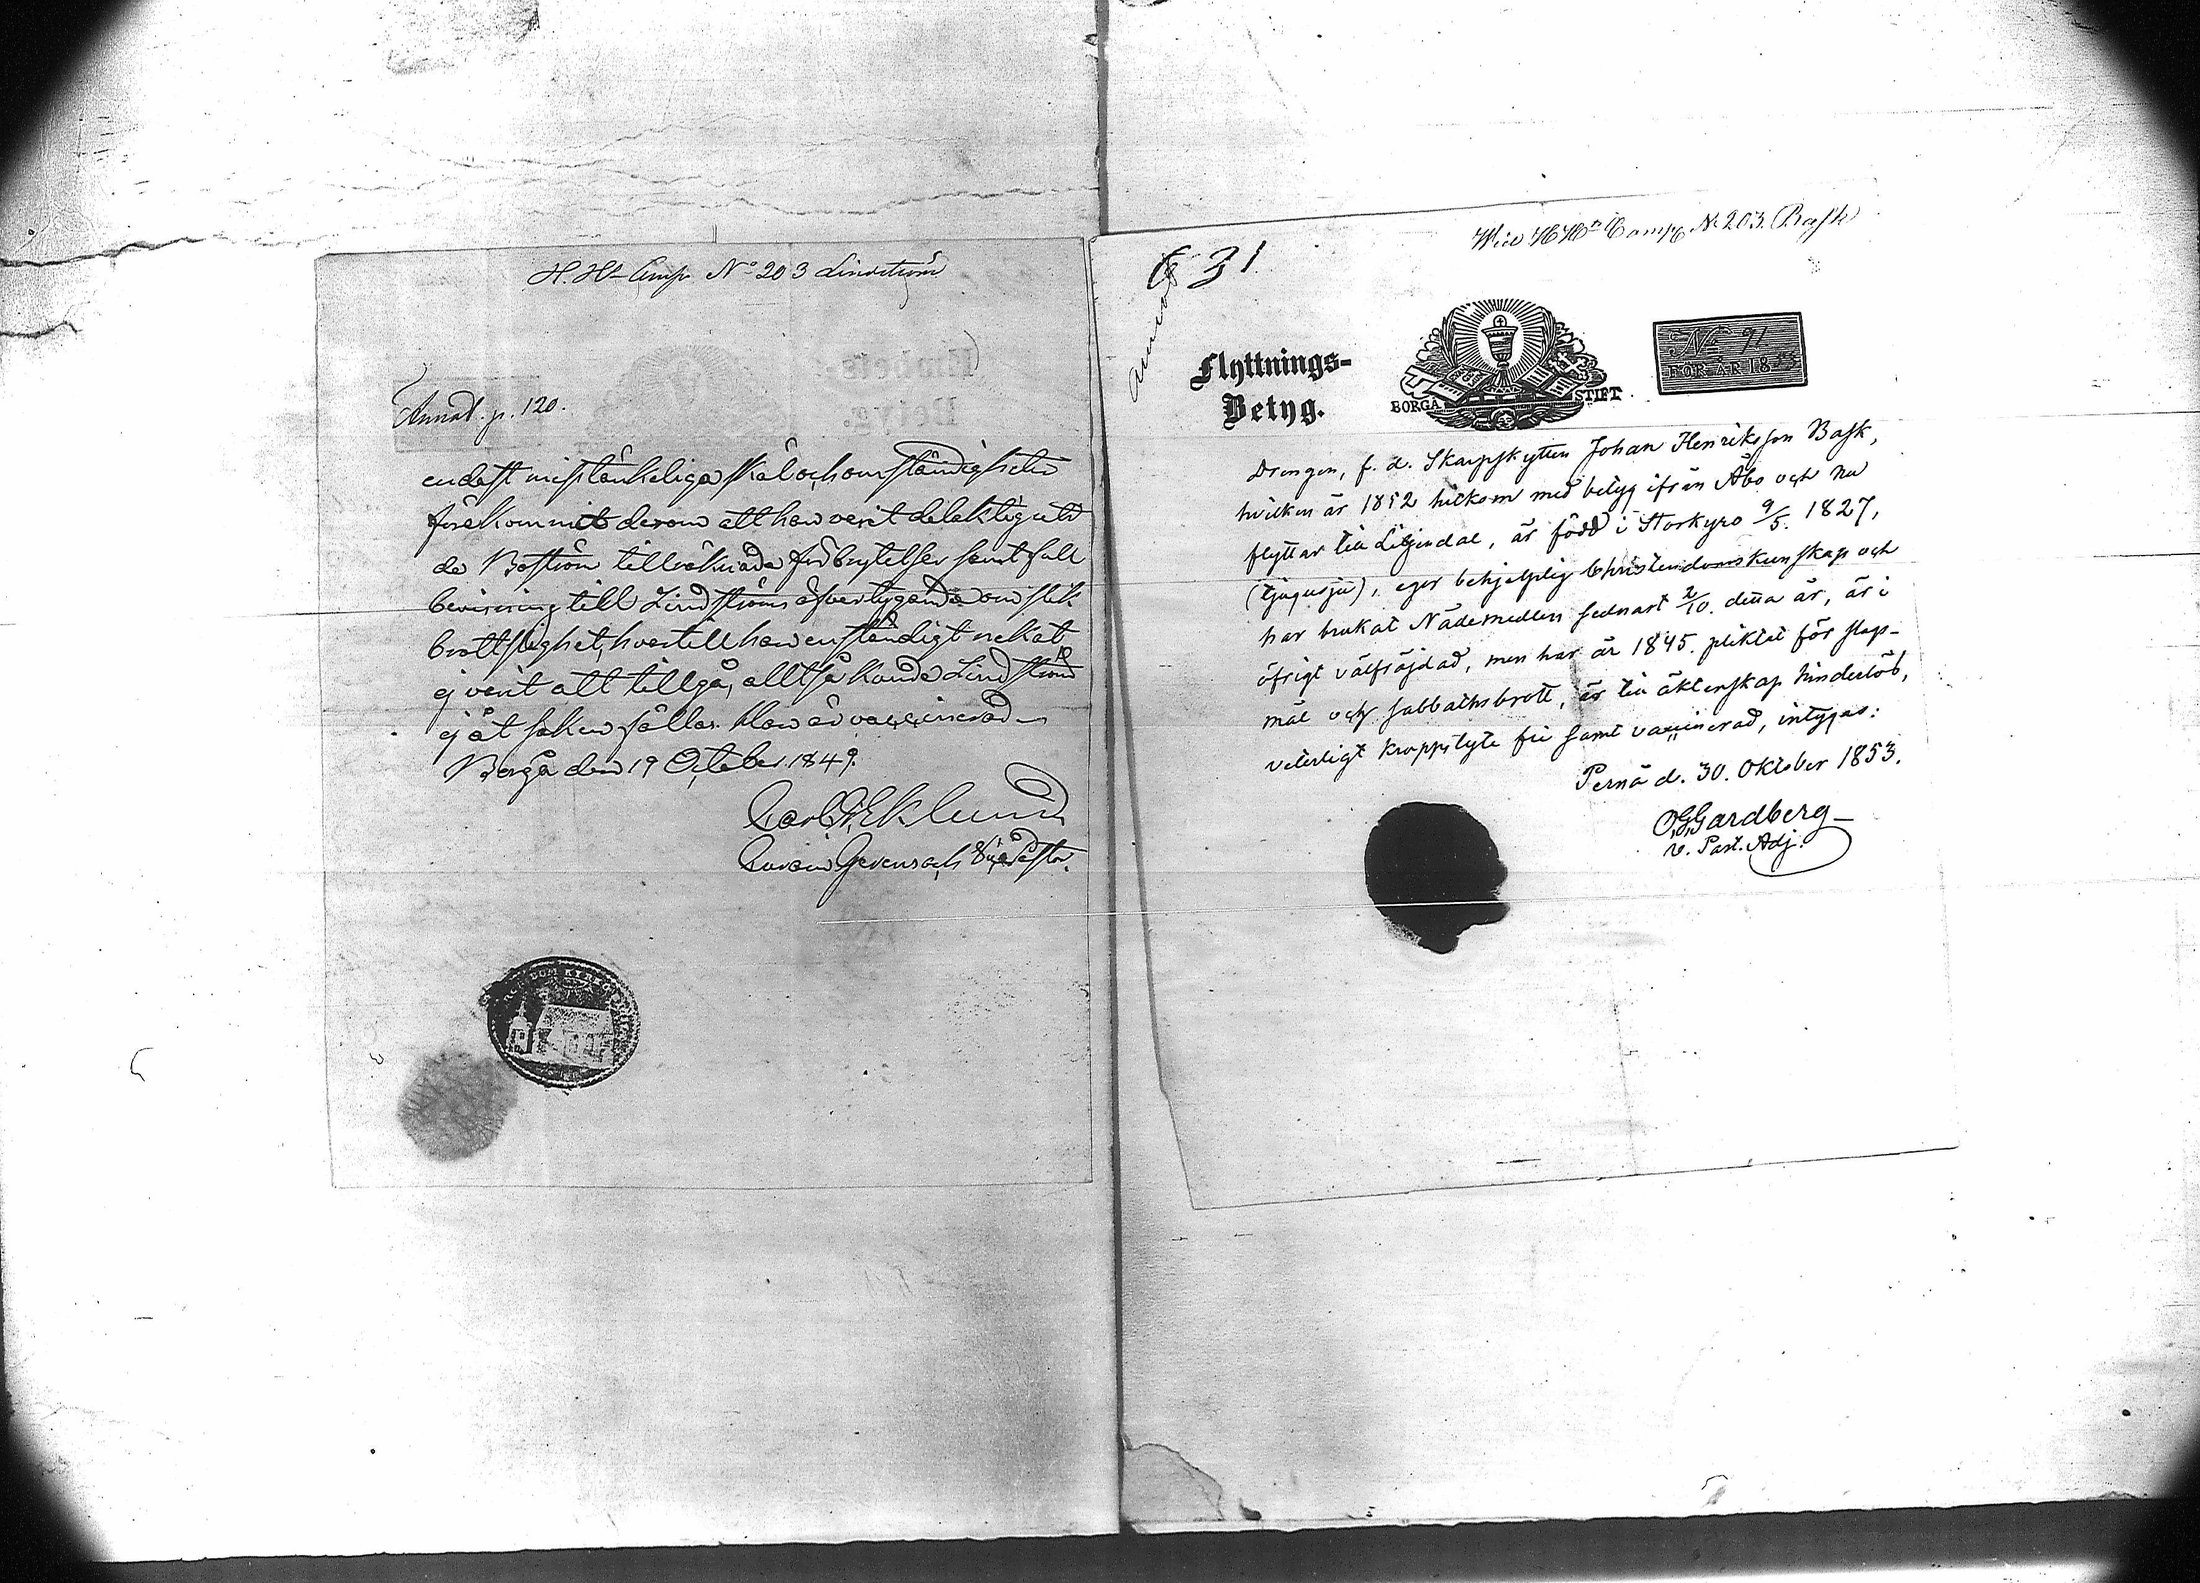 H. H. Camp. No 203 Lindström
Annot. p. 120.
endast misstänkeliga skäl och omständigheter
förekommit derom att han varit delaktig uti
de Boström tillräknade förbrytelser samt full
bevisning till Lindströms öfvertygande om slik
brottslighet, hvartill han enständigt nekat,
ej varit att tillgå, alltså kunde Lindström
ej åt saken fällas. Han är vaccinerad
Borgå den 19 October 1849.
Carl Eklund
Wid Camp No 203. Bask
31.
Flyttnings-
Betyg.
BORGÅ STIFT
No 91
FÖR ÅR 1853
Drengen, f. d. Skarpskytten Johan Henriksson Bask,
hvilken år 1852 hitkom med betyg ifrån Åbo och nu
flyttar till Liljendal, är född i Storkyro 9/5. 1827,
(tjugusju), eger behjelplig Christendomskunskap och
har brukat Nådemedlen sednast 2/10. detta år, är i
öfrigt välfräjdad, men har år 1845. pliktat för slags-
mål och sabbathsbrott, är till äktenskap hinderlös,
veterligt kroppslyte fri samt vaccinerad, intygas:
Pernå d. 30. Oktober 1853.
O. G. Gardberg
v. Past. Adj.